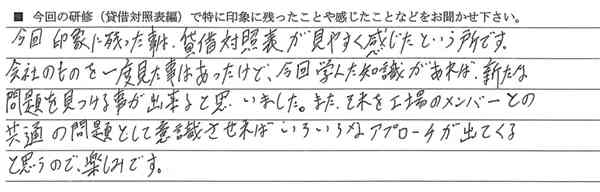 ■ 今回の研修（貸借対照表編）で特に印象に残ったことや感じたことなどをお聞かせ下さい。
今回 印象に残った事は、貸借対照表が見やすく感じたという所です。
会社のものを一度見た事はあったけど、今回学んだ知識があれば、新たな
問題を見つける事が出来ると思いました。また、工場のメンバーとの
共通の問題として意識させればいろいろなアプローチが出てくる
と思うので、楽しみです。